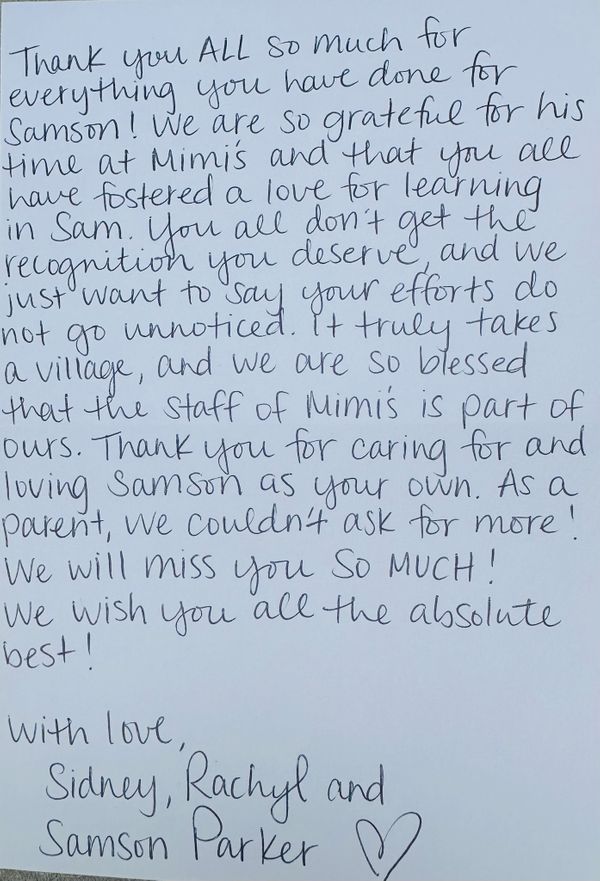 Thank you ALL so much for
everything you have done for
Samson! We are so grateful for his
time at Mimi's and that you all
have fostered a love for learning
in Sam. You all don't get the
recognition you deserve, and we
just want to say your efforts do
not go unnoticed. It truly takes
a village, and we are so blessed
that the staff of Mimi's is part of
ours. Thank you for caring for and
loving Samson as your own. As a
parent, we couldn't ask for more!
We will miss you SO MUCH!
We wish you all the absolute
best!
With love,
Sidney, Rachyl and
Samson Parker